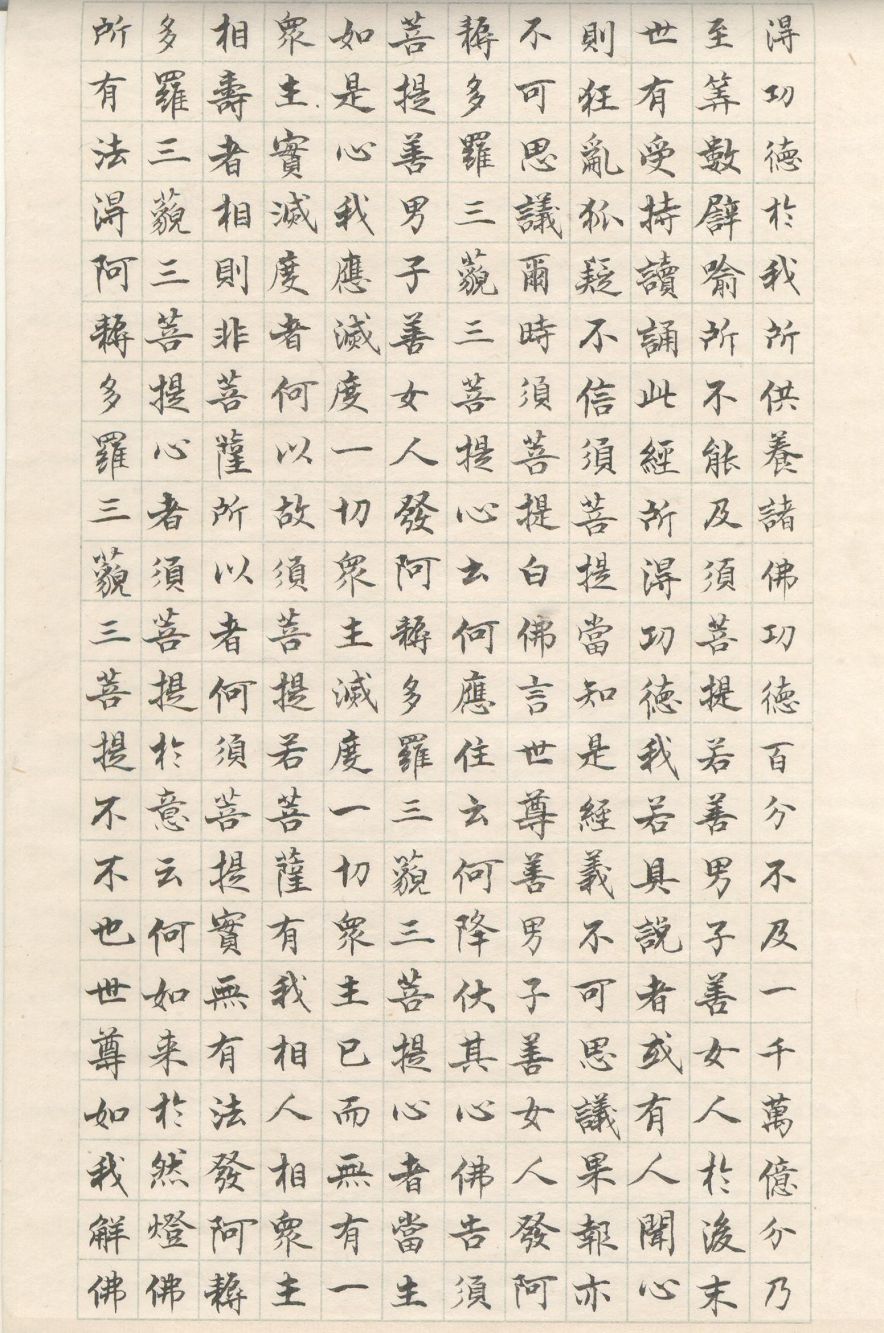 得功德於我所供養諸佛功德百分不及一千萬億分乃
至筭數譬喻所不能及須菩提若善男子善女人於後末
世有受持讀誦此經所得功德我若具說者或有人聞心
則狂亂狐疑不信須菩提當知是經義不可思議果報亦
不可思議爾時須菩提白佛言世尊善男子善女人發阿
耨多羅三藐三菩提心云何應住云何降伏其心佛告須
菩提善男子善女人發阿耨多羅三藐三菩提心者當生
如是心我應滅度一切眾生滅度一切眾生已而無有一
眾生實滅度者何以故須菩提若菩薩有我相人相眾生
相壽者相則非菩薩所以者何須菩提實無有法發阿耨
多羅三藐三菩提心者須菩提於意云何如来於然燈佛
所有法得阿耨多羅三藐三菩提不不也世尊如我解佛